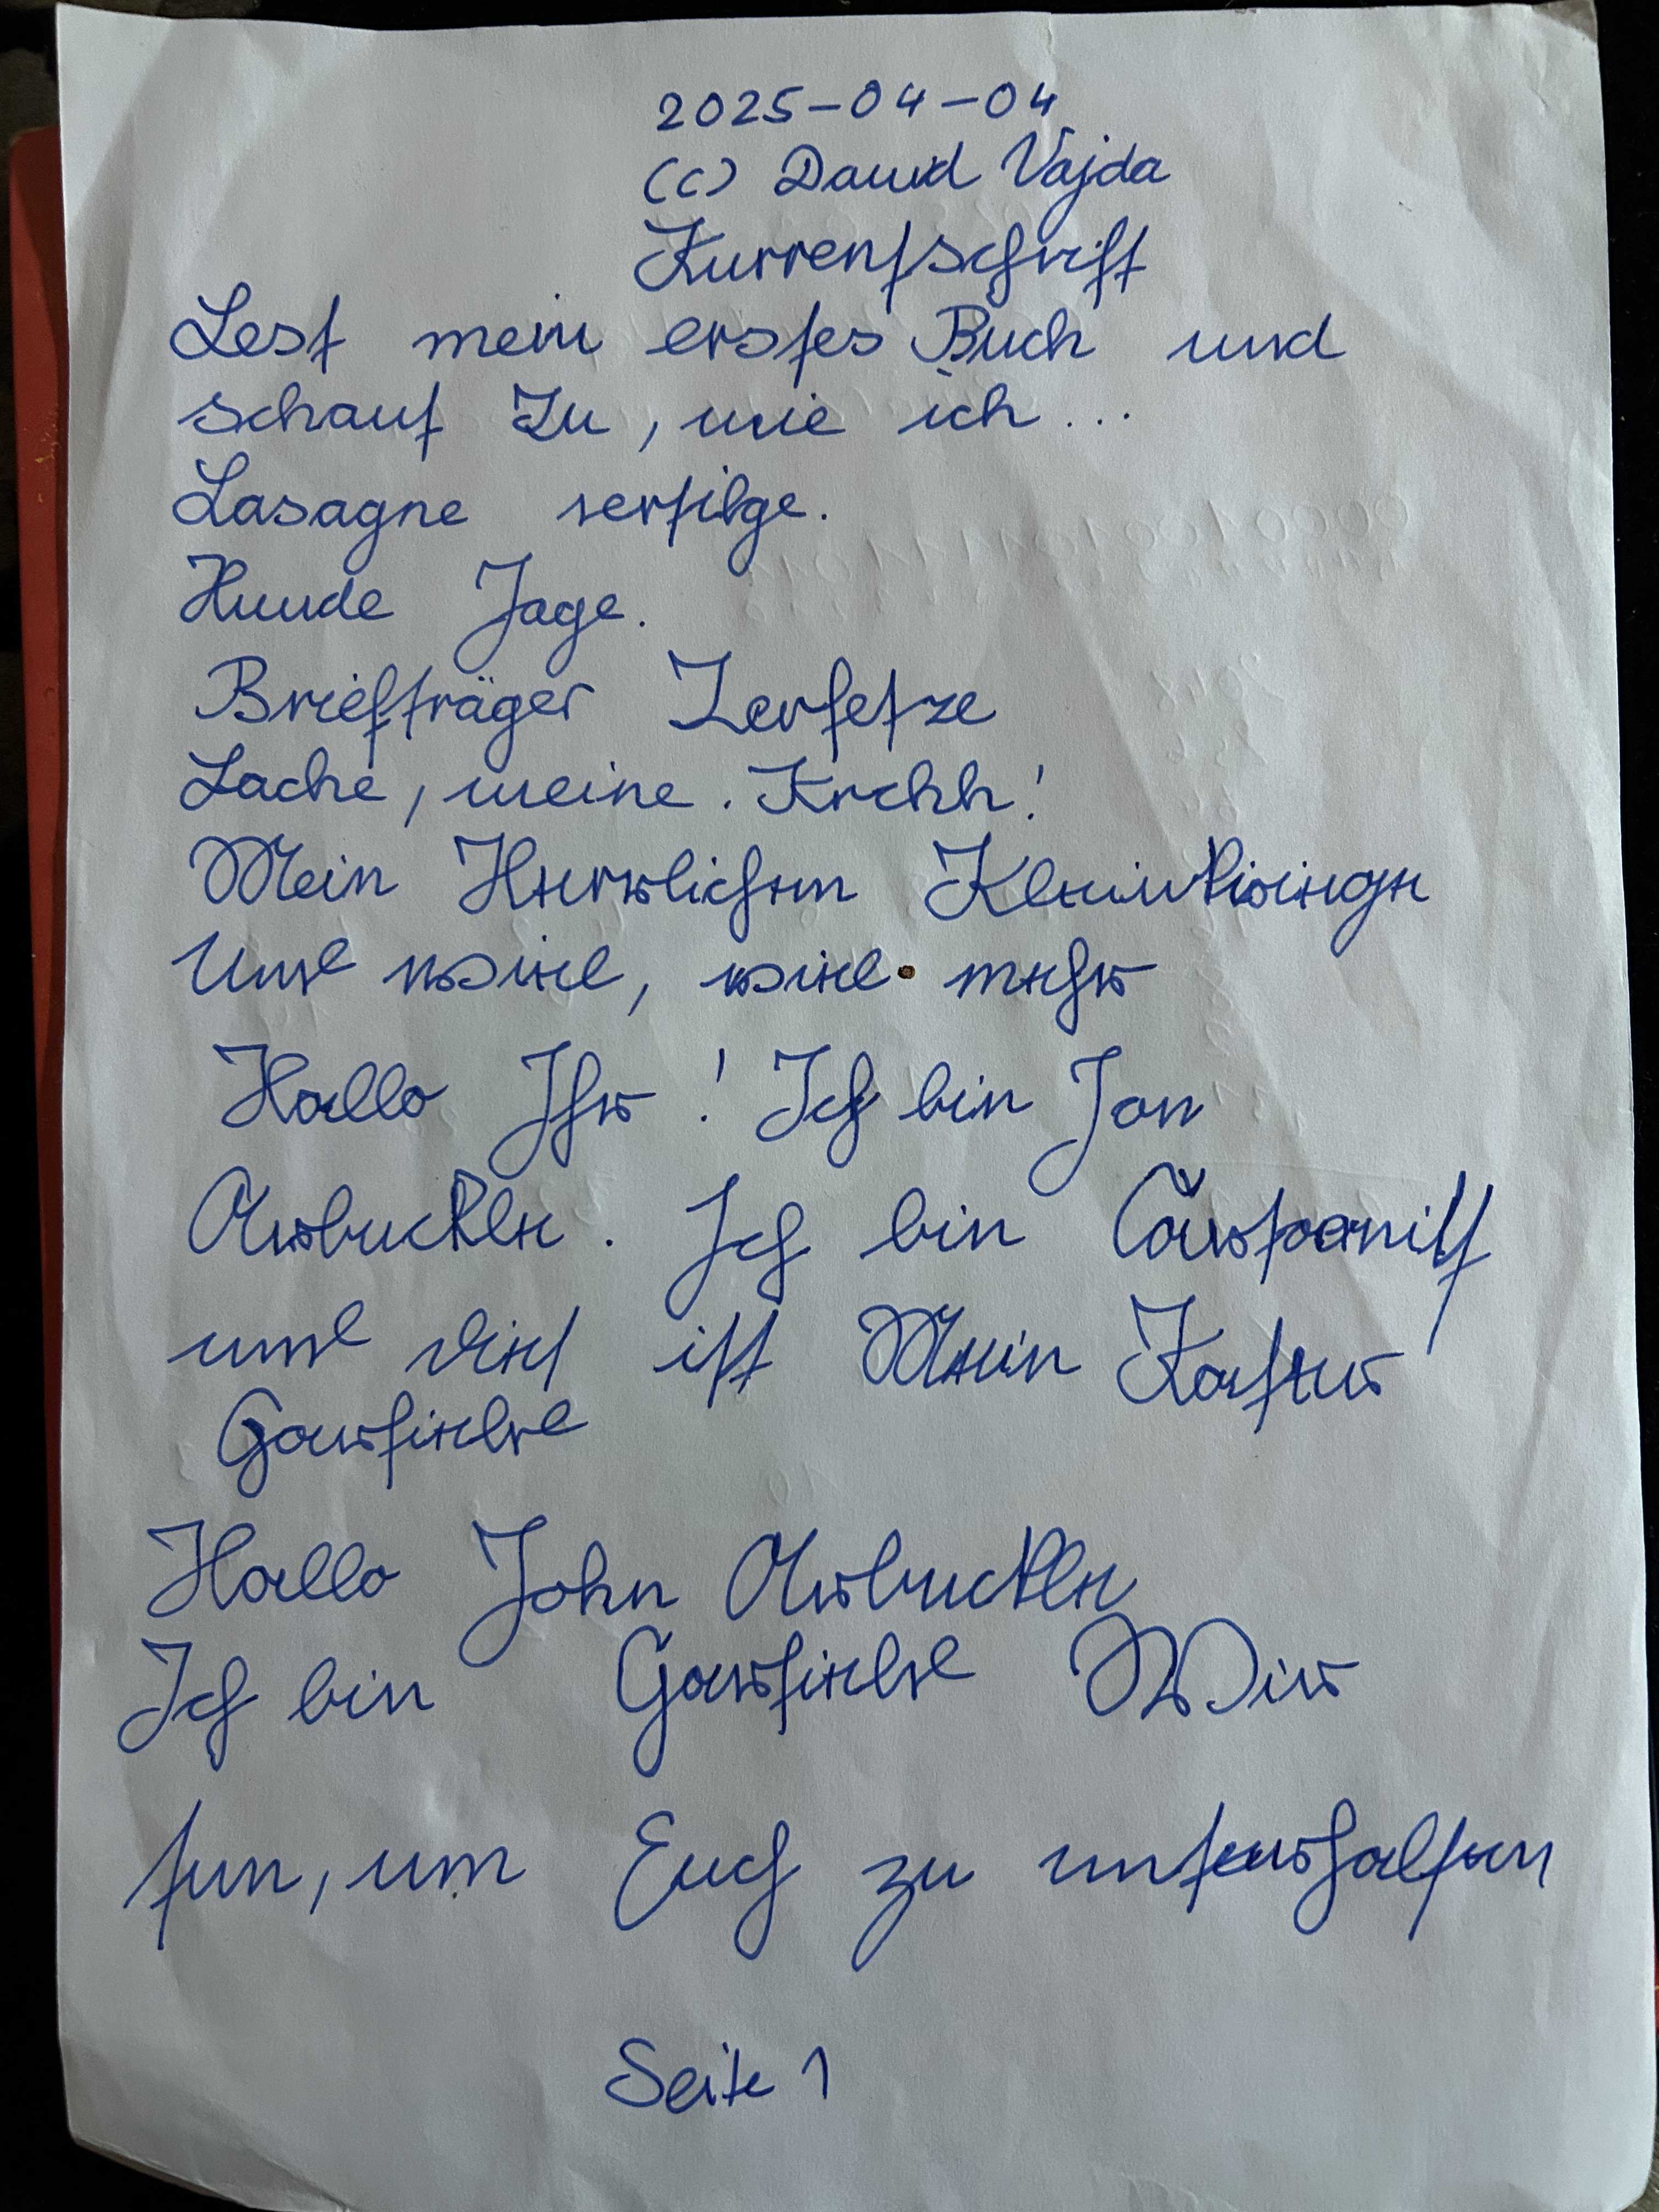 2025-04-04
(c) David Vajda
Kurrentschrift
Lest mein erstes Buch und
schaut Zu, wie ich...
Lasagne vertilge.
Hunde Jage.
Briefträger Zerfetze
Lache, weine. Krchh!
Mein Herrlichen Kleinkriege
Und viel, viel mehr
Hallo Ihr! Ich bin Jon
Arbuckle. Ich bin Cartoonist
und dies ist Mein Kater
Garfield
Hallo John Arbuckle
Ich bin Garfield Wir
tun, um Euch zu unterhalten
Seite 1